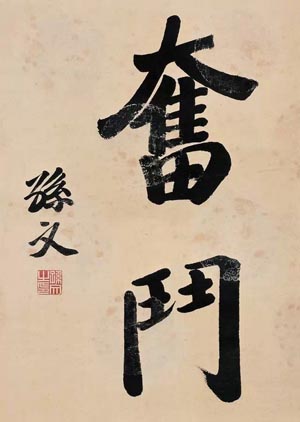 奮鬥
孫文